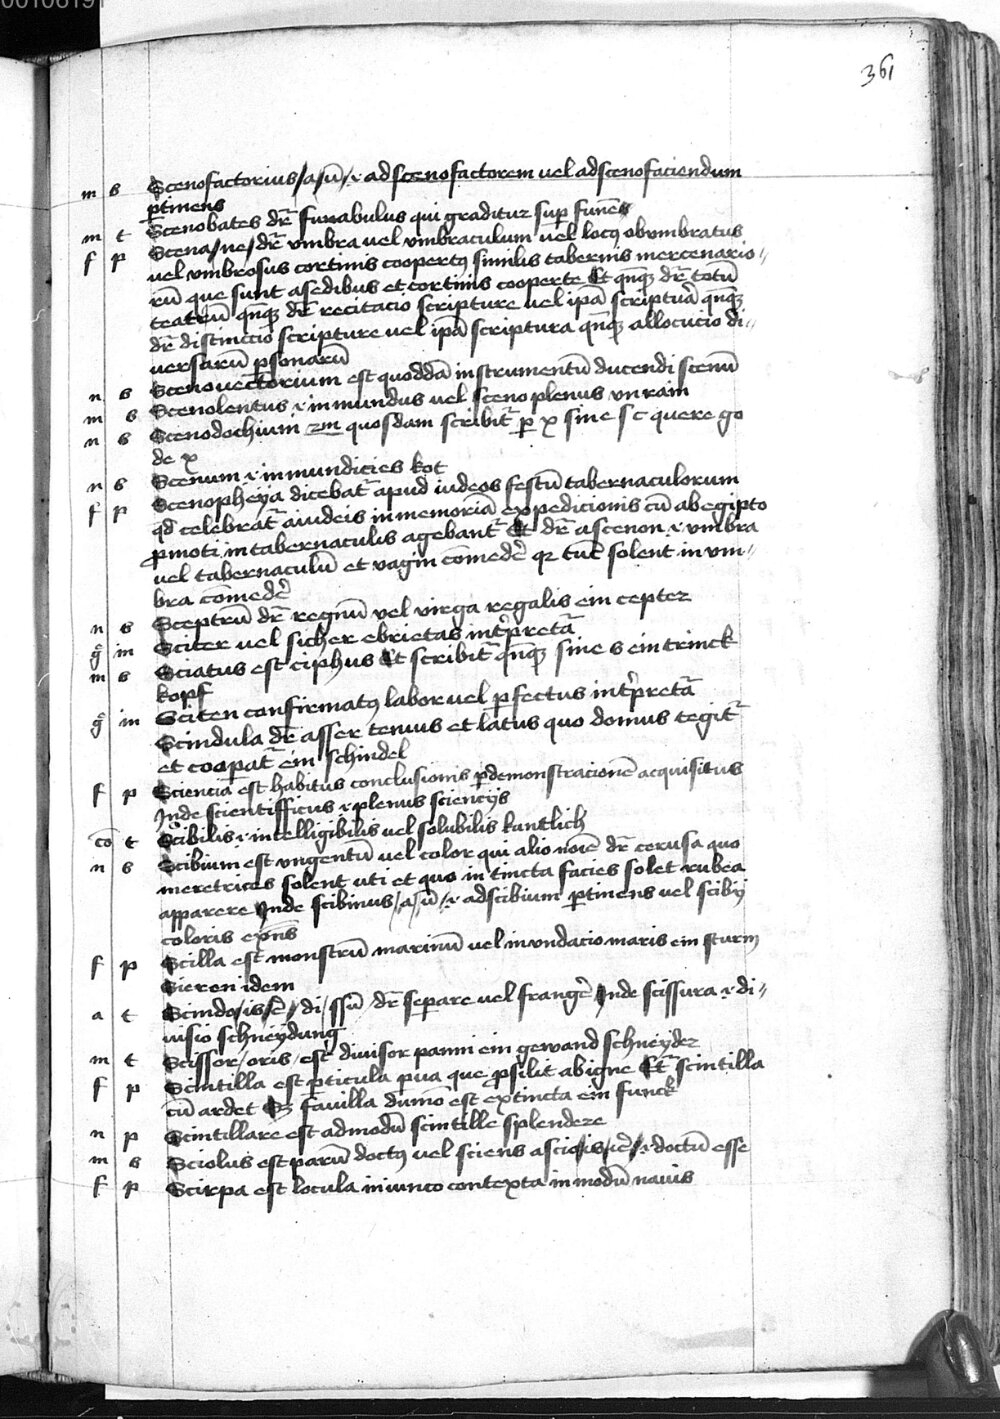 00106191
361
m s Scenofactorius/a/ū/ ·i· ad scenofactorem vel ad scenofaciendum
ꝑtinens
m t Scenobates dr̄ funabulus qui graditur suꝑ funes
f p Scena/ne/ dr̄ vmbra vel vmbraculum vel locꝯ obumbratus
vel vmbrosus cortinis coopertꝯ similis tabernis mercenario-
rū que sunt asedibus et cortinis cooperte Et qn̄qꝫ dr̄ totū
teatrū qn̄qꝫ dr̄ recitacio scripture vel ip̄a scriptura qn̄qꝫ
dr̄ distinctio scripture vel ip̄a scriptura qn̄qꝫ allocucio di-
uersarū ꝑsonarū
n s Scenovectorium est quoddā instrumentū ducendi scenū
m s Scenolentus ·i· inmundus vel sceno plenus vnrain
n s Scenodochium scd̄m quosdam scribit᷑ ꝑ x sine s c quere go
de x
n s Scenum ·i· inmundicies kot
f p Scenopheya dicebat᷑ apud iudeos festū tabernaculorum
qd̄ celebrat᷑ a iudeis in memoriā expedicionis cū ab egipto
ꝓmoti in tabernaculis agebant᷑ Et dr̄ a scenon ·i· vmbra
vel tabernaculū et vagin com̄eder̄ qꝛ tūc solent in vm-
bra com̄eder̄
n s Sceptrū dr̄ regnū vel virga regalis ein cepter
g̊ in Sciter vel sicher ebrietas int̄pretā
m s Sciatus est ciphus Et scribit᷑ qn̄qꝫ sine s ein trinck
kopf
g̊ in Sciten confirmatꝯ labor vel ꝑfectus int̄pretā
Scindula dr̄ asser tenuis et latus quo domus tegit᷑
et cooꝑat᷑ ein schindel
f p Sciencia est habitus conclusionis ꝑ demonstracionē acquisitus
Inde scientifficus ·i· plenus sciencijs
cō t Scibilis ·i· intelligibilis vel solubilis kantlich
n s Scibium est vngentū vel color qui alio noīe dr̄ cerusa quo
meretrices solent uti et quo in tincta facies solet rubea
apparere Inde scibinus/a/ū/ ·i· ad scibium ꝑtinens vel scibij
coloris exn̄s
f p Scilla est monstrū marinū vel inundacio maris ein sturm
Sieren idem
a t Scindo/is/ē/di/ssū/ dr̄ seꝑare vel frangēr Inde scissura ·i· di-
uisio schneydung
m t Scissor/oris/ est diuisor panni ein gewand schneyder
f p Scintilla est ꝑticula ꝑua que ꝓsilit ab igne Et᷑ scintilla
cū ardet Sꝫ fauilla dum̄o est extincta ein funck
n p Scintillare est ad modū scintille splendere
m s Sciolus est parū doctꝯ vel sciens a scio/is/ir̄e/ ·i· doctū esse
f p Scirpa est locula in iunco contexta in modū nauis